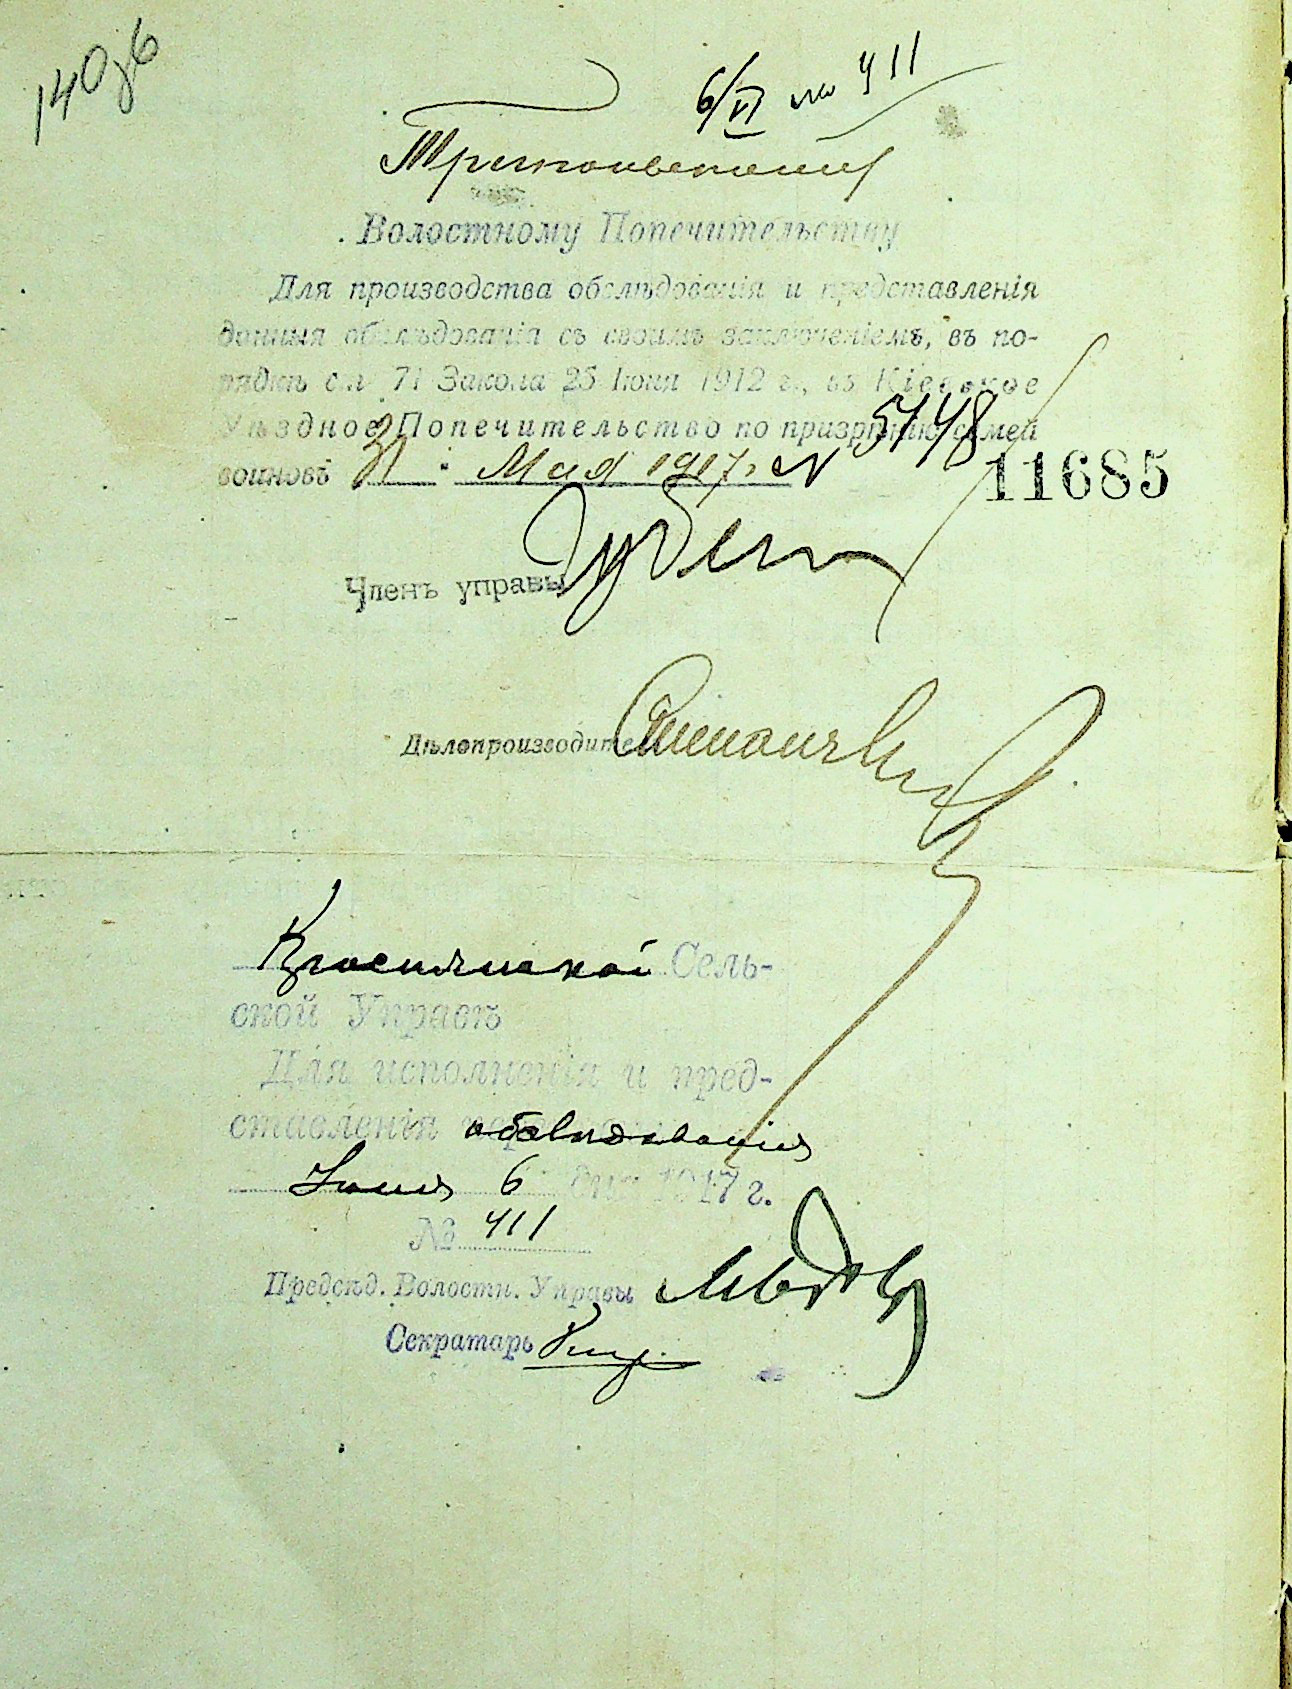 140зв
6/VI № 411
Трипольскому
Волостному Попечительству
Для производства обслѣдованія и представленія
данныя обслѣдованія съ своимъ заключеніемъ, въ по-
рядкѣ ст 71 Закона 25 Іюня 1912 г., въ Кіевское
Уѣздное Попечительство по призрѣнію семей
воиновъ 31 " Мая 1917 г N 5448
11685
Членъ управы
Дѣлопроизводитель
Сель-
ской Управѣ
Для исполненія и пред-
ставленія обслѣдованія
Іюня 6 дня 1917 г.
№ 411
Предсѣд. Волостн. Управы
Секратарь